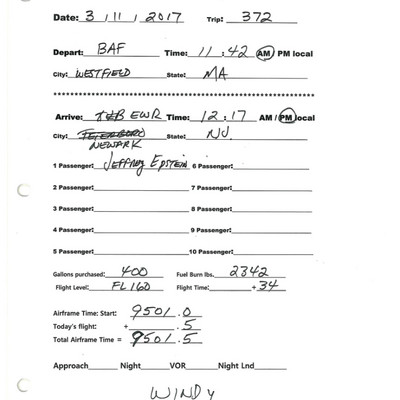 Date: 3/11/2017 Trip: 372
Depart: BAF Time: 11:42 AM / PM local
City: WESTFIELD State: MA
Arrive: TEB EWR Time: 12:17 AM / PM local
City: TETERBORO State: NJ
NEWARK
1 Passenger: Jeffrey Epstein 6 Passenger:
2 Passenger: 7 Passenger:
3 Passenger: 8 Passenger:
4 Passenger: 9 Passenger:
5 Passenger: 10 Passenger:
Gallons purchased: 400 Fuel Burn lbs. 2342
Flight Level: FL160 Flight Time: + 34
Airframe Time: Start: 9501.0
Today's flight: + .5
Total Airframe Time = 9501.5
Approach Night VOR Night Lnd
WINDY